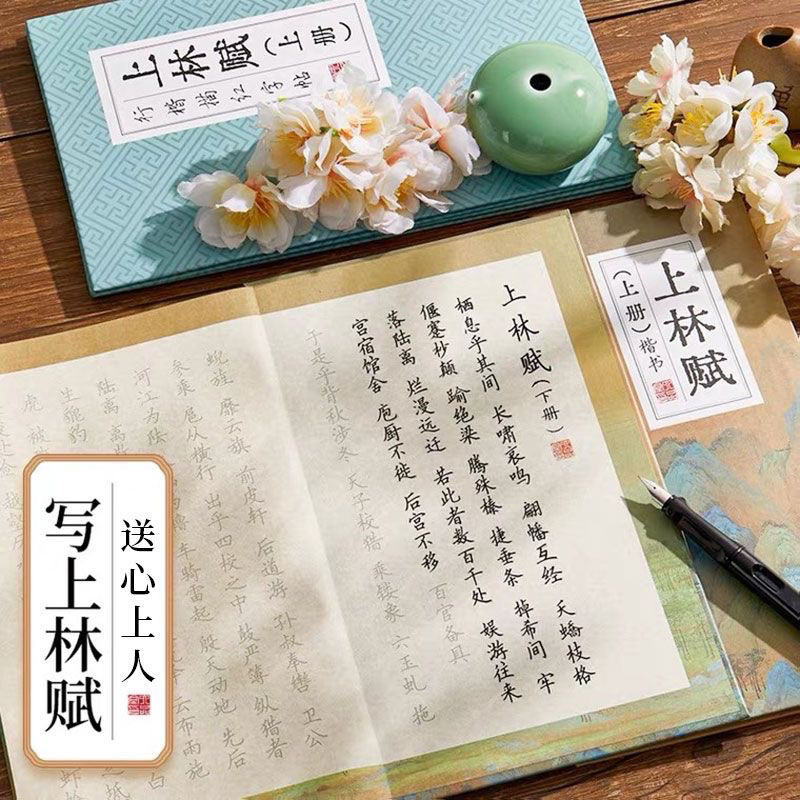 上林赋(上册)
行楷描红字帖
上林赋
(上册)楷书
上林赋(下册)
栖息乎其间 长啸哀鸣 翩幡互经 夭蟠枝格
偃蹇杪颠 踰绝梁 腾殊榛 捷垂条 掉希间 牢
落陆离 烂漫远迁 若此者数百千处 娱游往来
宫宿馆舍 庖厨不徙 后宫不移 百官备具
于是乎背秋涉冬 天子校猎 乘镂象 六玉虬 拖
蜺旌 靡云旗 前皮轩 后道游 孙叔奉辔 卫公
参乘 扈从横行 出乎四校之中 鼓严簿 纵猎者
河江为阹 车骑雷起 殷天动地 先后
陆离 离散 云布雨施
生貔豹
写上林赋
送心上人